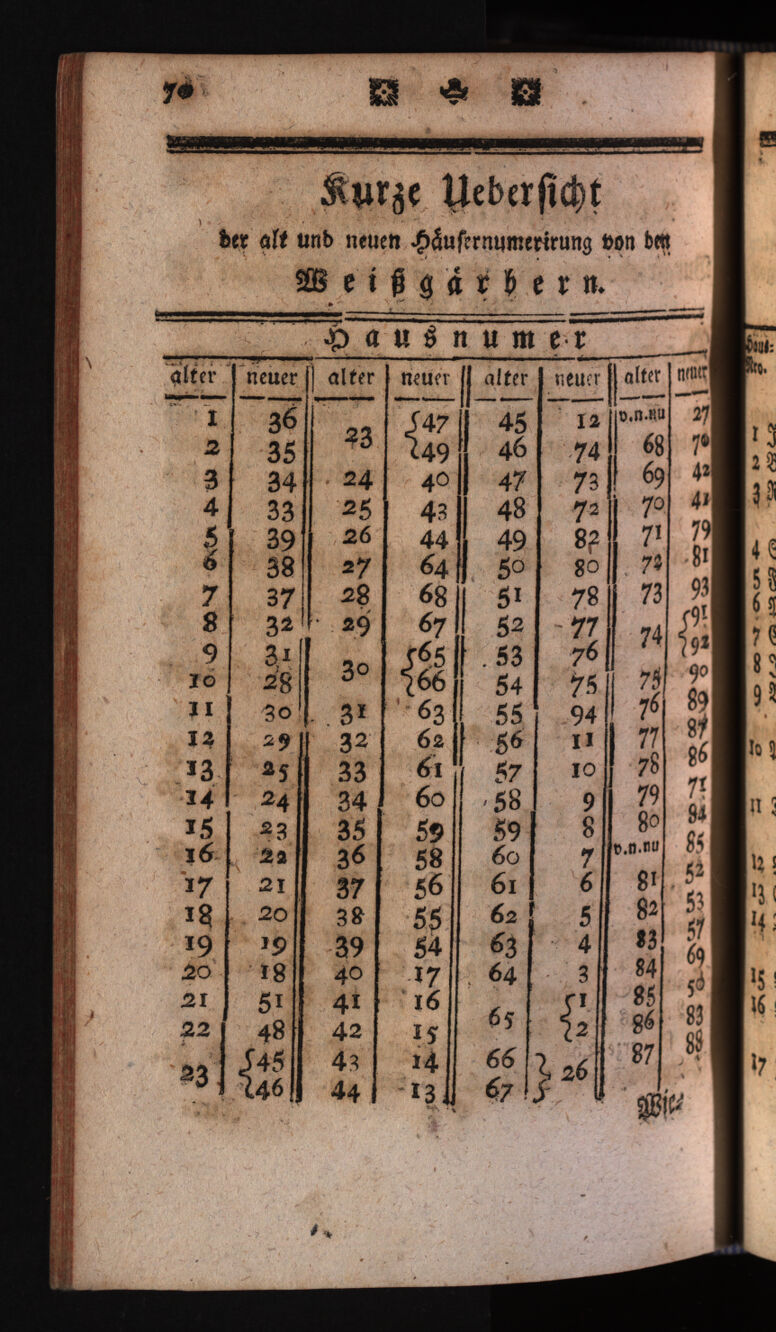 70
Kurze Uebersicht
der alt und neuen Häusernumerirung von den
Weißgärbern.
Hausnumer
alter neuer alter neuer alter neuer alter neuer
1 36 23 {47 45 12 v.n.nu 27
2 35 {49 46 74 68 70
3 34 24 40 47 73 69 42
4 33 25 43 48 72 70 41
5 39 26 44 49 82 71 79
6 38 27 64 50 80 72 81
7 37 28 68 51 78 73 93
8 32 29 67 52 77 74 {91
9 31 30 {65 53 76 {92
10 28 {66 54 75 75 90
11 30 31 63 55 94 76 89
12 29 32 62 56 11 77 87
13 25 33 61 57 10 78 86
14 24 34 60 58 9 79 71
15 23 35 59 59 8 80 84
16 22 36 58 60 7 v.n.nu 85
17 21 37 56 61 6 81 52
18 20 38 55 62 5 82 53
19 19 39 54 63 4 83 57
20 18 40 17 64 3 84 69
21 51 41 16 65 {1 85 50
22 48 42 15 {2 86 83
23 {45 43 14 66 } 26 87 88
{46 44 13 67
Wie=
Haus=
Nro.
1
2
3
4
5
6
7
8
9
10
11
12
13
14
15
16
17